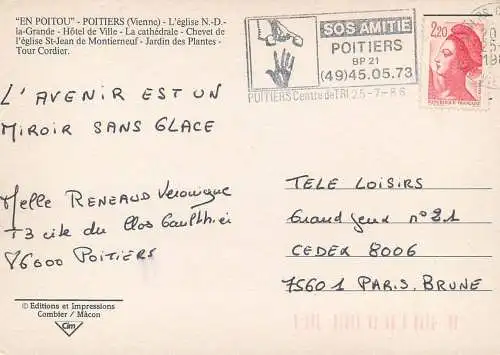 "EN POITOU" - POITIERS (Vienne) - L'église N.-D.-
la-Grande - Hôtel de Ville - La cathédrale - Chevet de
l'église St-Jean de Montierneuf - Jardin des Plantes -
Tour Cordier.
SOS AMITIE
POITIERS
BP 21
(49)45.05.73
POITIERS Centre de TRI 25-7-86
2,20
L'AVENIR EST UN
MIROIR SANS GLACE
Melle RENEAUD Veronique
13 cite du Clos Gaulthier
86000 POITIERS
TELE LOISIRS
Grand Jeux n°21
CEDEX 8006
75601 PARIS. BRUNE
© Editions et Impressions
Combier / Mâcon
Cim